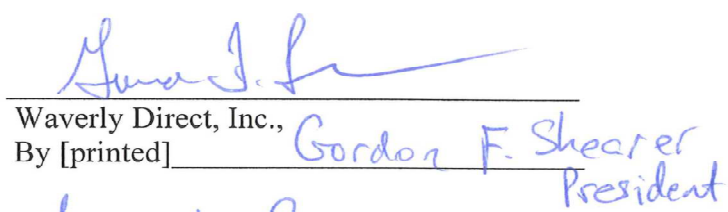 Waverly Direct, Inc.,
By [printed] Gordon F. Shearer
President